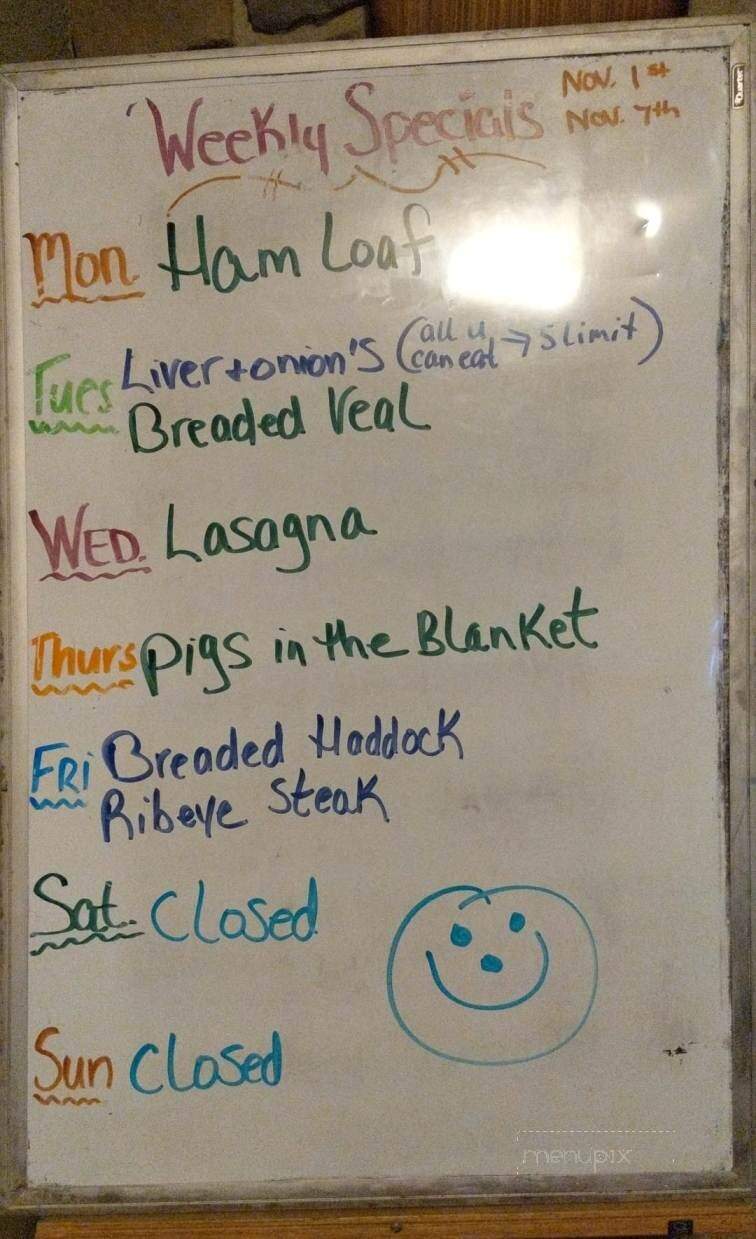 Weekly Specials
Nov. 1st
Nov. 7th
Mon. Ham Loaf
Tues Liver + onion's (all u can eat → 5 limit)
Breaded Veal
WED. Lasagna
Thurs Pigs in the Blanket
FRI Breaded Haddock
Ribeye Steak
Sat. Closed
Sun Closed
menupix